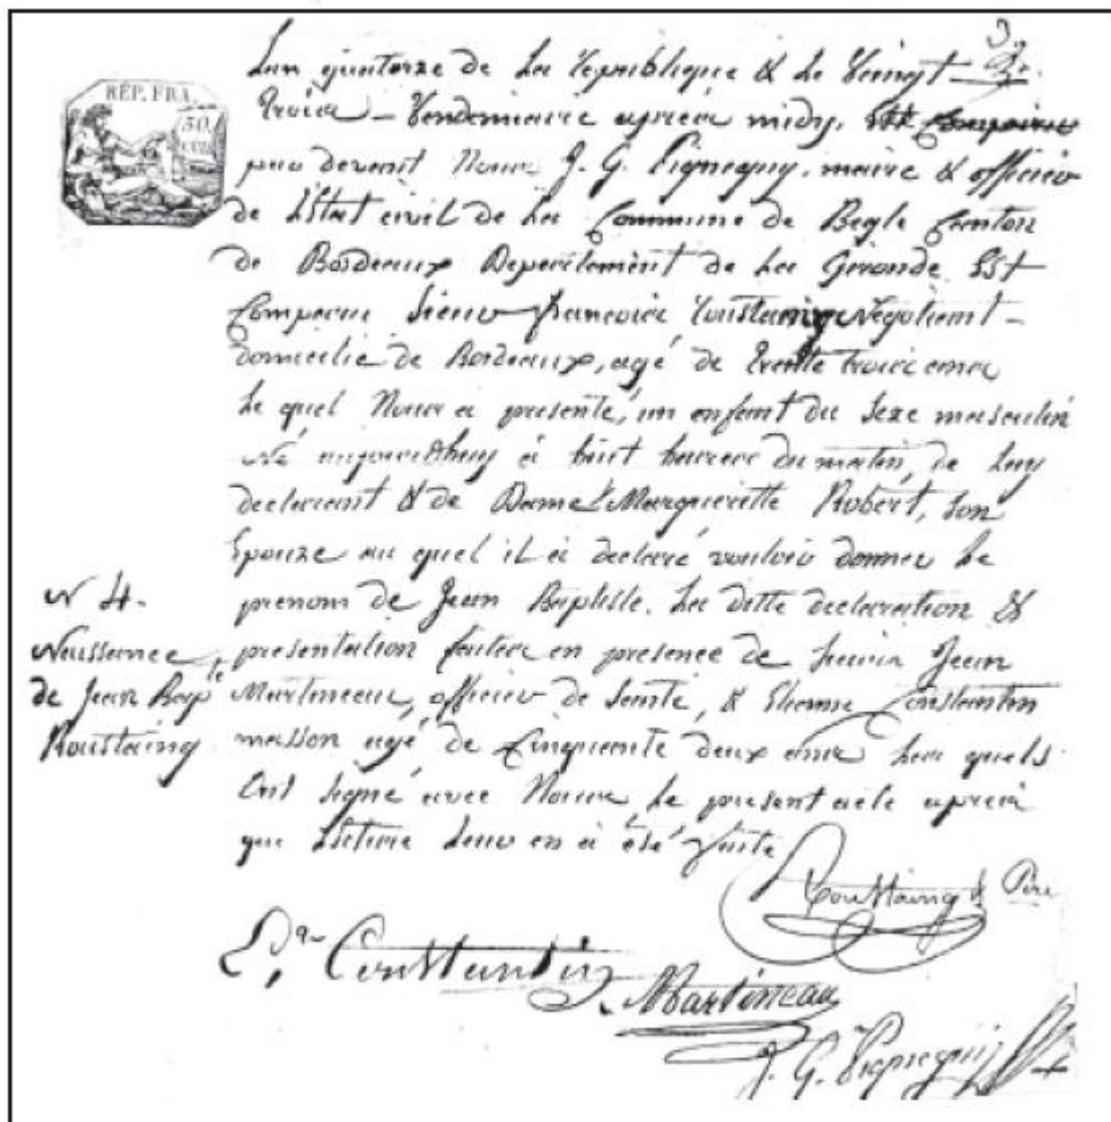 RÉP. FRA.
50.
Lan quatorze de La Republique & Le Veingt
Troica - Vendemiaire aprèx midy.
par devant Noux J. G. Pigneguy, maire & officier
de L'état civil de La Commune de Begle Canton
de Bordeaux Departement de La Gironde Est
Comparu Sieur françoix Roustaing Négotiant -
domicilié de Bordeaux, agé de trente troix anx
Le quel Noux a presenté, un enfant du Sexe masculin
Né aujourdhuy à huit heurex du matin, de Luy
declarant & de Dame Margueritte Robert, Son
Epouze au quel il à declaré vouloir donner Le
N 4.
prenom de Jean Baptiste. La ditte declaration &
Naissance
presentation faitex en presence de Jean
de Jean Bapte
Martineau, officier de Santé, & Etienne Constantin
Roustaing
masson agé de Cinquante deux anx Lex quels
Ont Signé avec Noux Le present acte aprèx
que Lecture Leur en à été faite
Roustaing Père
Constantin
Martineau
J. G. Pigneguy